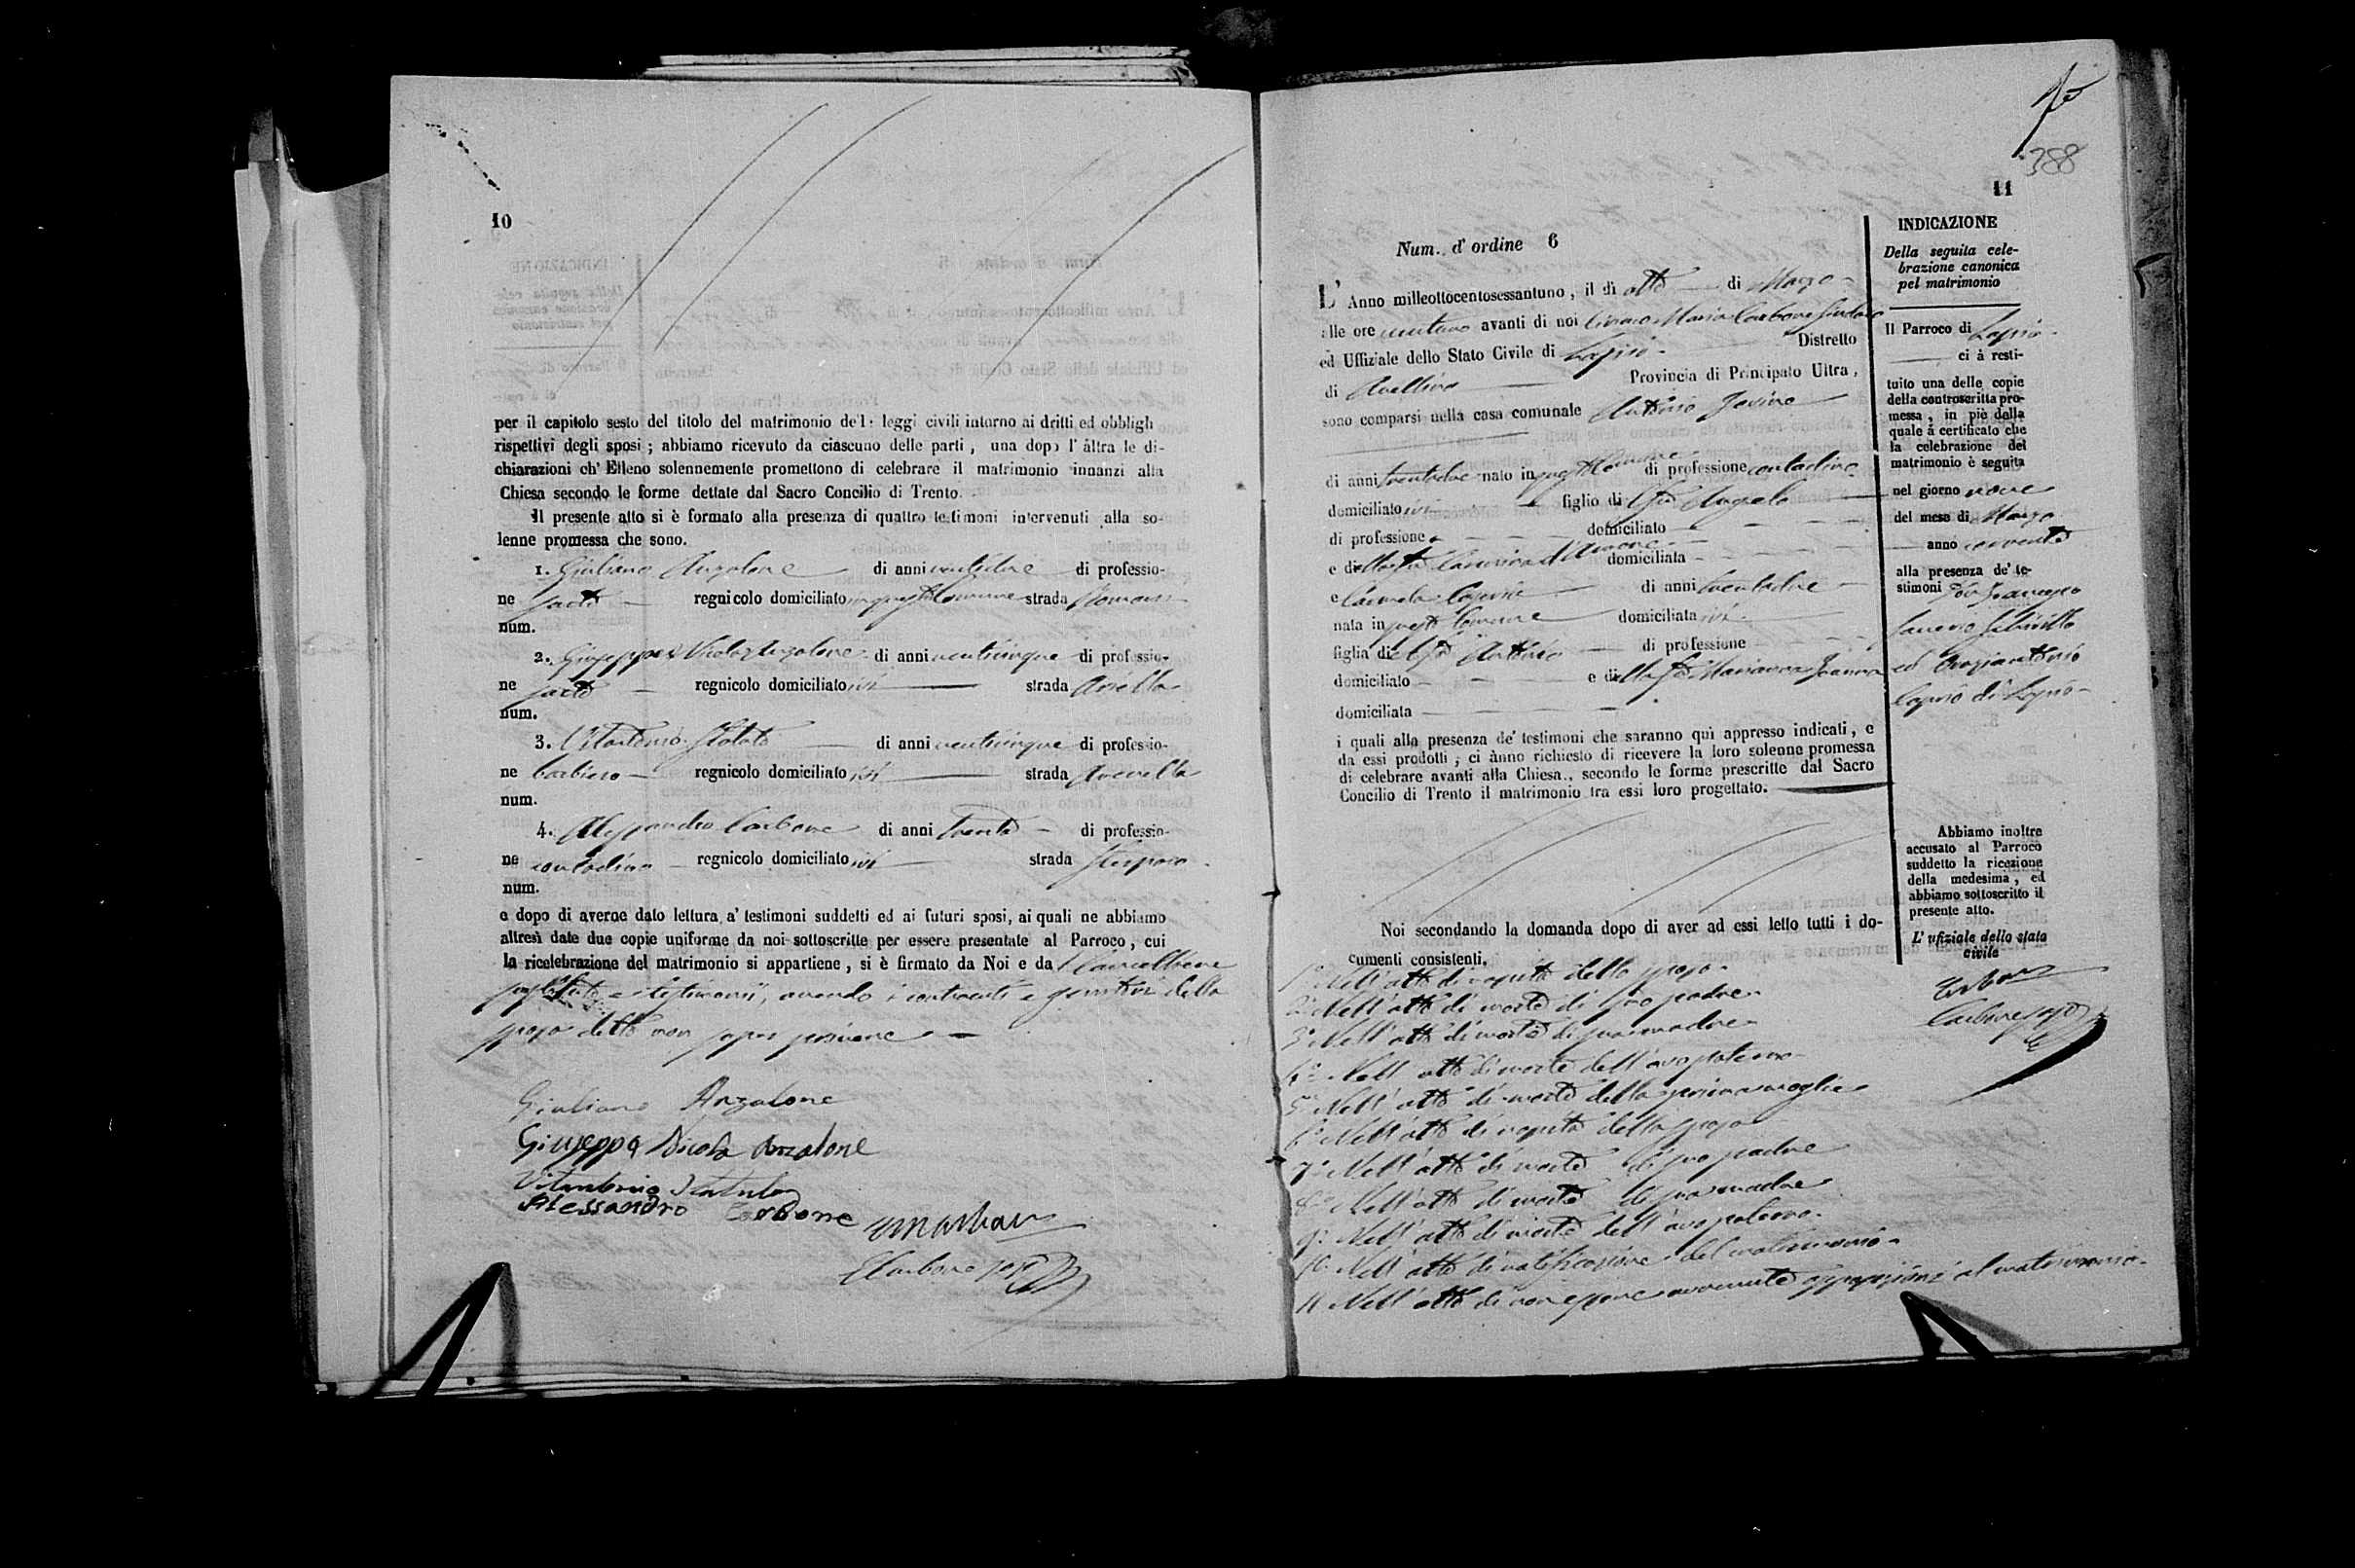 10
per il capitolo sesto del titolo del matrimonio delle leggi civili intorno ai dritti ed obblighi
rispettivi degli sposi ; abbiamo ricevuto da ciascuno delle parti , una dopo l' altra le di-
chiarazioni ch' Elleno solennemente promettono di celebrare il matrimonio innanzi alla
Chiesa secondo le forme dettate dal Sacro Concilio di Trento.
Il presente atto si è formato alla presenza di quattro testimoni intervenuti alla so-
lenne promessa che sono.
1. Giuliano Anzalone di anni ventidue di professio-
ne sarto regnicolo domiciliato in questo Comune strada
num.
2. Giuseppe Nicola Anzalone di anni venticinque di professio-
ne sarto regnicolo domiciliato ivi strada
num.
3. Vitantonio di anni venticinque di professio-
ne barbiere regnicolo domiciliato ivi strada
num.
4. Alessandro Carbone di anni trenta di professio-
ne contadino regnicolo domiciliato ivi strada
num.
e dopo di averne dato lettura a' testimoni suddetti ed ai futuri sposi, ai quali ne abbiamo
altresì date due copie uniforme da noi sottoscritte per essere presentate al Parroco , cui
la ricelebrazione del matrimonio si appartiene , si è firmato da Noi e dal Cancelliere
e testimonii, avendo i contraenti e genitori della
sposa detto non saper scrivere
Giuliano Anzalone
Giuseppe Nicola Anzalone
Vitantonio
Alessandro Carbone
Carbone
388
11
Num. d' ordine 6
L' Anno milleottocentosessantuno , il dì otto di Marzo
alle ore ventuno avanti di noi Maria Carbone Sindaco
ed Uffiziale dello Stato Civile di Lapio Distretto
di Avellino Provincia di Principato Ultra ,
sono comparsi nella casa comunale Antonio Iovino
di anni trentadue nato in questo Comune di professione contadino
domiciliato ivi figlio di Angelo
di professione domiciliato
e della fu domiciliata
e Carmela di anni trentadue
nata in questo Comune domiciliata ivi
figlia del fu Antonio di professione
domiciliato e della fu Marianna
domiciliata
i quali alla presenza de' testimoni che saranno quì appresso indicati , e
da essi prodotti , ci ànno richiesto di ricevere la loro solenne promessa
di celebrare avanti alla Chiesa , secondo le forme prescritte dal Sacro
Concilio di Trento il matrimonio tra essi loro progettato.
Noi secondando la domanda dopo di aver ad essi letto tutti i do-
cumenti consistenti,
1º Nell' atto di nascita dello sposo
2º Nell' atto di morte di suo padre
3º Nell' atto di morte di sua madre
4º Nell' atto di morte dell' avo paterno
5º Nell' atto di morte della prima moglie
6º Nell' atto di nascita della sposa
7º Nell' atto di morte di suo padre
8º Nell' atto di morte di sua madre
9º Nell' atto di morte dell' avo paterno
10 Nell' atto di notificazione del matrimonio
11 Nell' atto di non essere avvenute opposizioni al matrimonio
INDICAZIONE
Della seguita cele-
brazione canonica
pel matrimonio
Il Parroco di Lapio
ci à resti-
tuito una delle copie
della controscritta pro-
messa , in piè della
quale à certificato che
la celebrazione del
matrimonio è seguita
nel giorno nove
del mese di Marzo
anno corrente
alla presenza de' te-
stimoni Francesco
Saverio
ed
di Lapio
Abbiamo inoltre
accusato al Parroco
suddetto la ricezione
della medesima , ed
abbiamo sottoscritto il
presente atto.
L' ufiziale dello stato
civile
Carbone